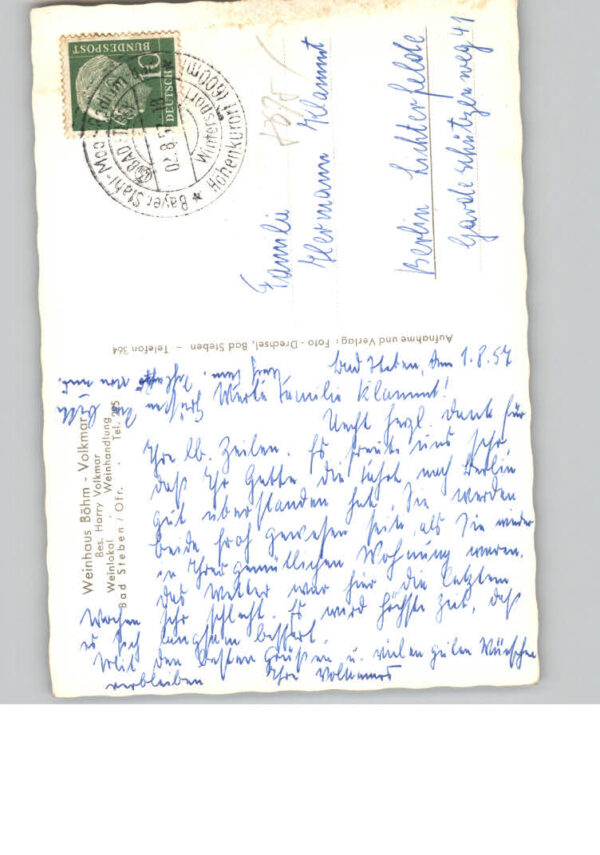 Weinhaus Böhm - Volkmar
Bes. Harry Volkmar
Weinlokal - Weinhandlung
Bad Steben / Ofr. - Tel. 295
Bad Steben, den 1.8.57
Werte Familie Klammt!
Recht herzl. Dank für
Ihre lb. Zeilen. Es freute uns sehr
daß Ihr Gatte die Fahrt nach Berlin
gut überstanden hat. Sie werden
beide froh gewesen sein als Sie wieder
in Ihrer gemütlichen Wohnung waren.
Das Wetter war hier die letzten
Wochen sehr schlecht. Es wird höchste Zeit, daß
es sich langsam bessert.
Mit den besten Grüßen u. vielen guten Wünschen
verbleiben Ihre Volkmars
Aufnahme und Verlag: Foto - Drechsel, Bad Steben - Telefon 364
DEUTSCHE
BUNDESPOST
10
BAD
02.8.57
Bayer. Stahl-Moor-
Höhenkurort (600 m)
Familie
Hermann Klammt
Berlin Lichterfelde
Gardeschützenweg 41